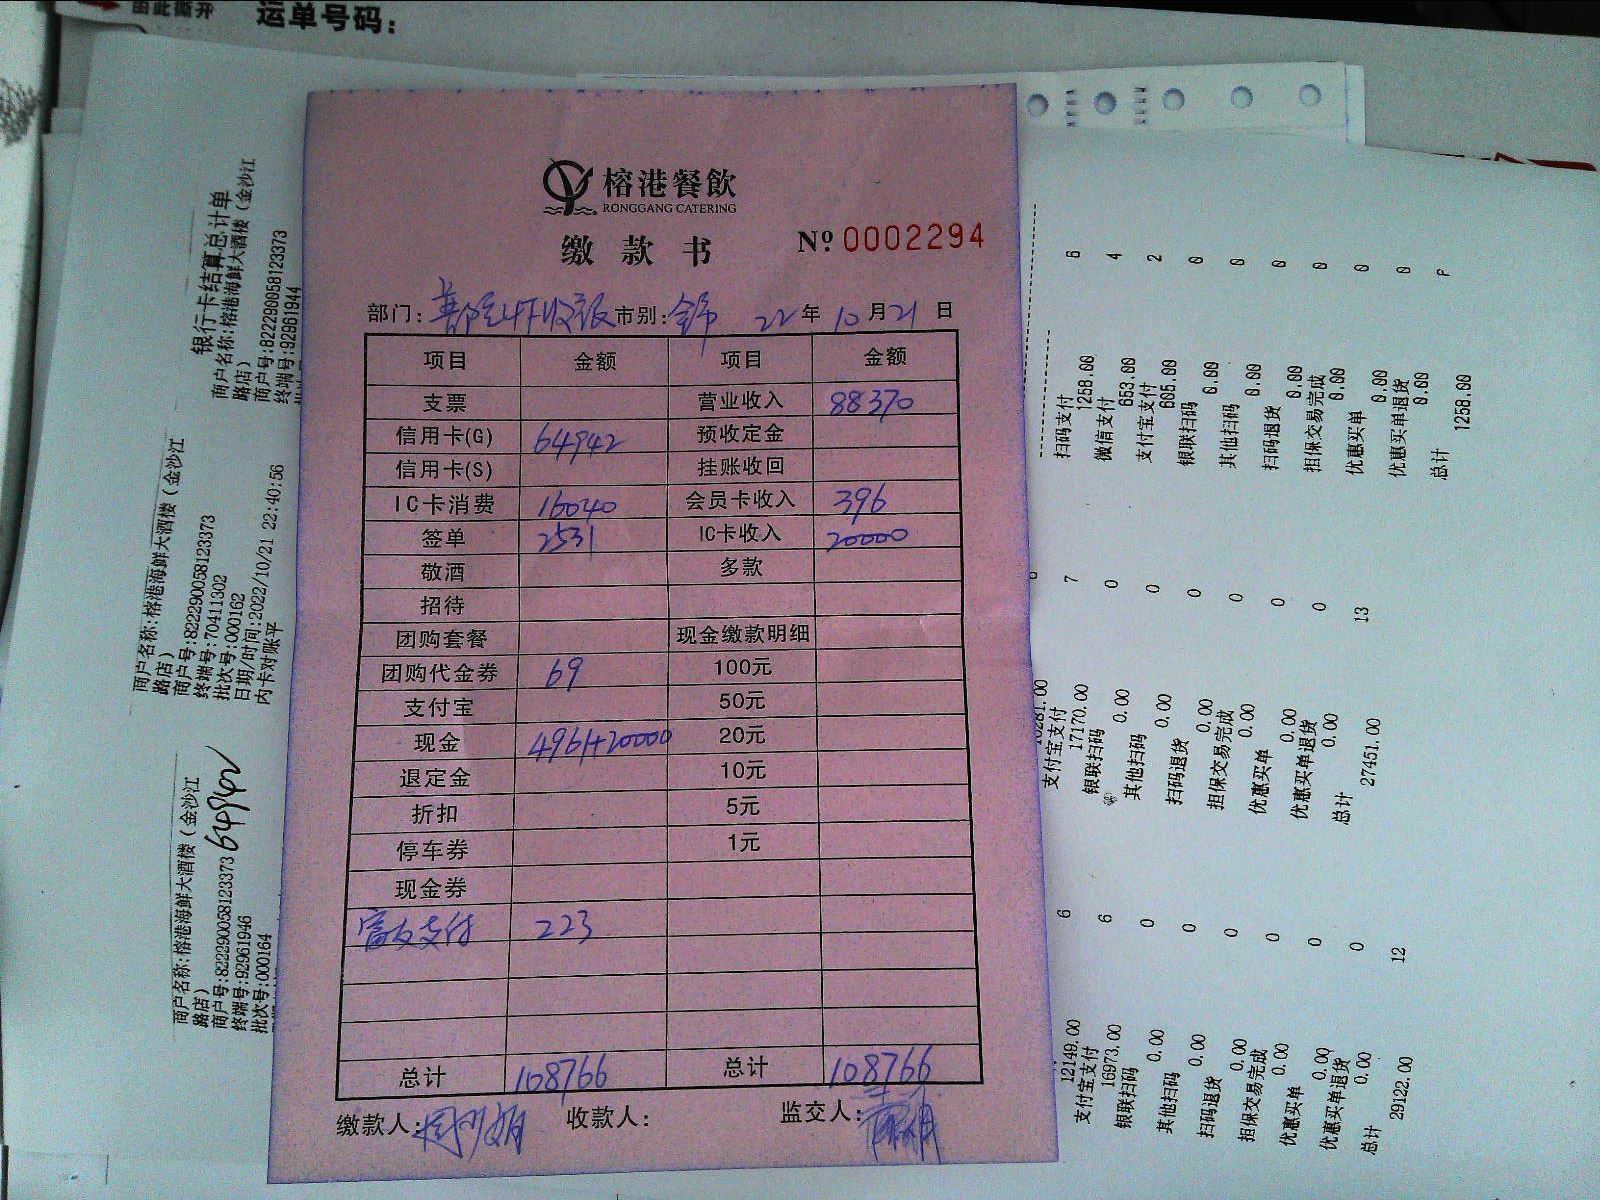 由此撕开 运单号码:
榕港餐飲
RONGGANG CATERING
缴款书 Nº 0002294
部门: 收银 市别: 全市 22年10月21日
项目 金额 项目 金额
支票 营业收入 88370
信用卡(G) 64942 预收定金
信用卡(S) 挂账收回
IC卡消费 16040 会员卡收入 396
签单 2531 IC卡收入 20000
敬酒 多款
招待
团购套餐 现金缴款明细
团购代金券 69 100元
支付宝 50元
现金 4961+20000 20元
退定金 10元
折扣 5元
停车券 1元
现金券
富友支付 223
总计 108766 总计 108766
缴款人: 收款人: 监交人:
银行卡结算总计单
商户名称:榕港海鲜大酒楼(金沙江
路店)
商户号:822290058123373
终端号:92961944
商户名称:榕港海鲜大酒楼(金沙江
路店)
商户号:822290058123373
终端号:70411302
批次号:000162
日期/时间:2022/10/21 22:40:56
内卡对账平
商户名称:榕港海鲜大酒楼(金沙江
路店)
商户号:822290058123373
终端号:92961946
批次号:000164
64942
扫码支付 6
1258.00
微信支付 4
653.00
支付宝支付 2
605.00
银联扫码 0
0.00
其他扫码 0
0.00
扫码退货 0
0.00
担保交易完成 0
0.00
优惠买单 0
0.00
优惠买单退货 0
0.00
总计
1258.00
支付宝支付 7
17170.00
银联扫码 0
0.00
其他扫码 0
0.00
扫码退货 0
0.00
担保交易完成 0
0.00
优惠买单 0
0.00
优惠买单退货 0
0.00
总计 13
27451.00
12149.00 6
支付宝支付 6
16973.00
银联扫码 0
0.00
其他扫码 0
0.00
扫码退货 0
0.00
担保交易完成 0
0.00
优惠买单 0
0.00
优惠买单退货 0
0.00
总计 12
29122.00